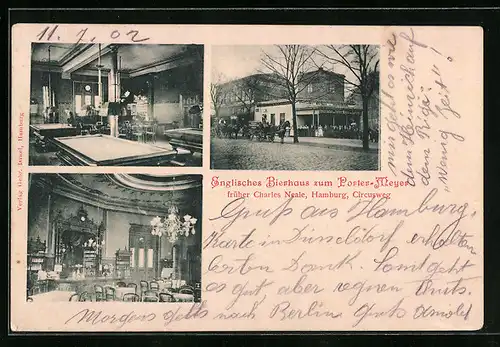 11.7.02
Verlag Gebr. Isreal, Hamburg.
Englisches Bierhaus zum Porter-Meyer
früher Charles Neale, Hamburg, Circusweg
mir geht es wie
dem Heinrich auf
dem Rigi:
"Wenig Zeit"!
Gruß aus Hamburg,
Karte in Düsseldorf erhalten
besten Dank. Sonst geht
es gut aber regnen thuts.
Morgen gehts nach Berlin Gruß Arnold